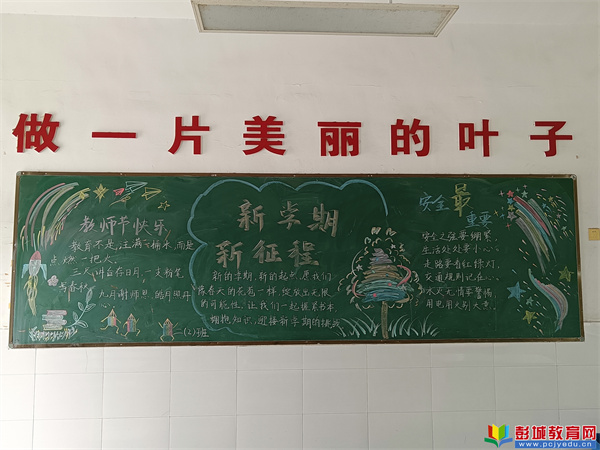 做一片美丽的叶子
教师节快乐
教育不是注满一桶水,而是
点燃一把火。
三人
写春秋
九月谢师恩,皓月照丹
一(2)班
新学期
新征程
新的学期,新的起点,愿我们
像春天的花苞一样,绽放出无限
的可能性,让我们一起携手书本
拥抱知识,迎接新学期的挑战
安全最
重要
安全之弦要绷紧
生活处处要小心
走路要看红绿灯,
交通规则记在心
水火无情要警惕,
用电用火别大意。
彭城教育网
www.pcjyedu.cn